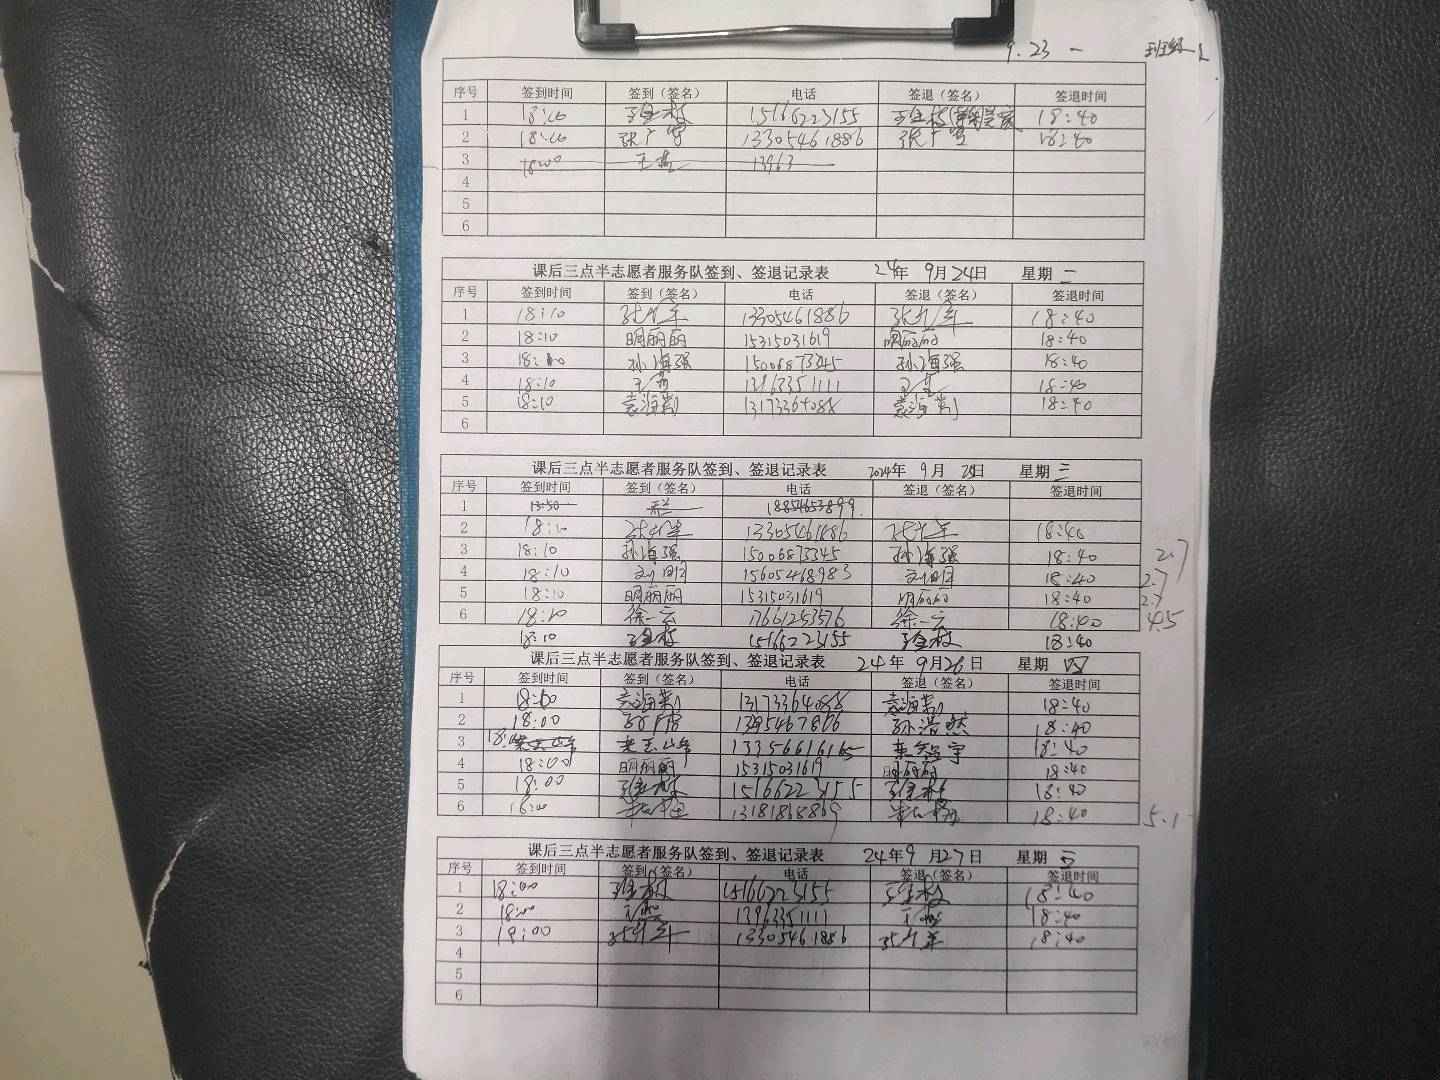 9.23 一 班级
序号 签到时间 签到（签名） 电话 签退（签名） 签退时间
1 18:00 15166223155 18:40
2 18:00 张广军 13305461886 张广军 18:40
3 18:00 王燕 13963
4
5
6
课后三点半志愿者服务队签到、签退记录表 24年 9月24日 星期 二
序号 签到时间 签到（签名） 电话 签退（签名） 签退时间
1 18:10 张广军 13305461886 张广军 18:40
2 18:10 明丽丽 15315031619 明丽丽 18:40
3 18:10 孙海强 15006873345 孙海强 18:40
4 18:10 王燕 13963351111 王燕 18:40
5 18:10 袁海荣 13173364088 袁海荣 18:40
6
课后三点半志愿者服务队签到、签退记录表 2024年 9月 25日 星期 三
序号 签到时间 签到（签名） 电话 签退（签名） 签退时间
1 13:50 18854653899
2 18:10 张广军 13305461886 张广军 18:40
3 18:10 孙海强 15006873345 孙海强 18:40 2.7
4 18:10 刘明 15605468983 刘明 18:40 2.7
5 18:10 明丽丽 15315031619 明丽丽 18:40 2.7
6 18:10 徐云 17661253576 徐云 18:40 4.5
18:10 15166223155 18:40
课后三点半志愿者服务队签到、签退记录表 24年 9月26日 星期 四
序号 签到时间 签到（签名） 电话 签退（签名） 签退时间
1 18:00 袁海荣 13173364088 袁海荣 18:40
2 18:00 孙浩然 18:40
3 18:00 13356616165 18:40
4 18:00 明丽丽 15315031619 明丽丽 18:40
5 18:00 15166223155 18:40
6 18:00 13181868869 18:40 5.1
课后三点半志愿者服务队签到、签退记录表 24年9月27日 星期 五
序号 签到时间 签到（签名） 电话 签退（签名） 签退时间
1 18:00 15166223155 18:40
2 18:00 王燕 13963351111 王燕 18:40
3 18:00 张广军 13305461886 张广军 18:40
4
5
6